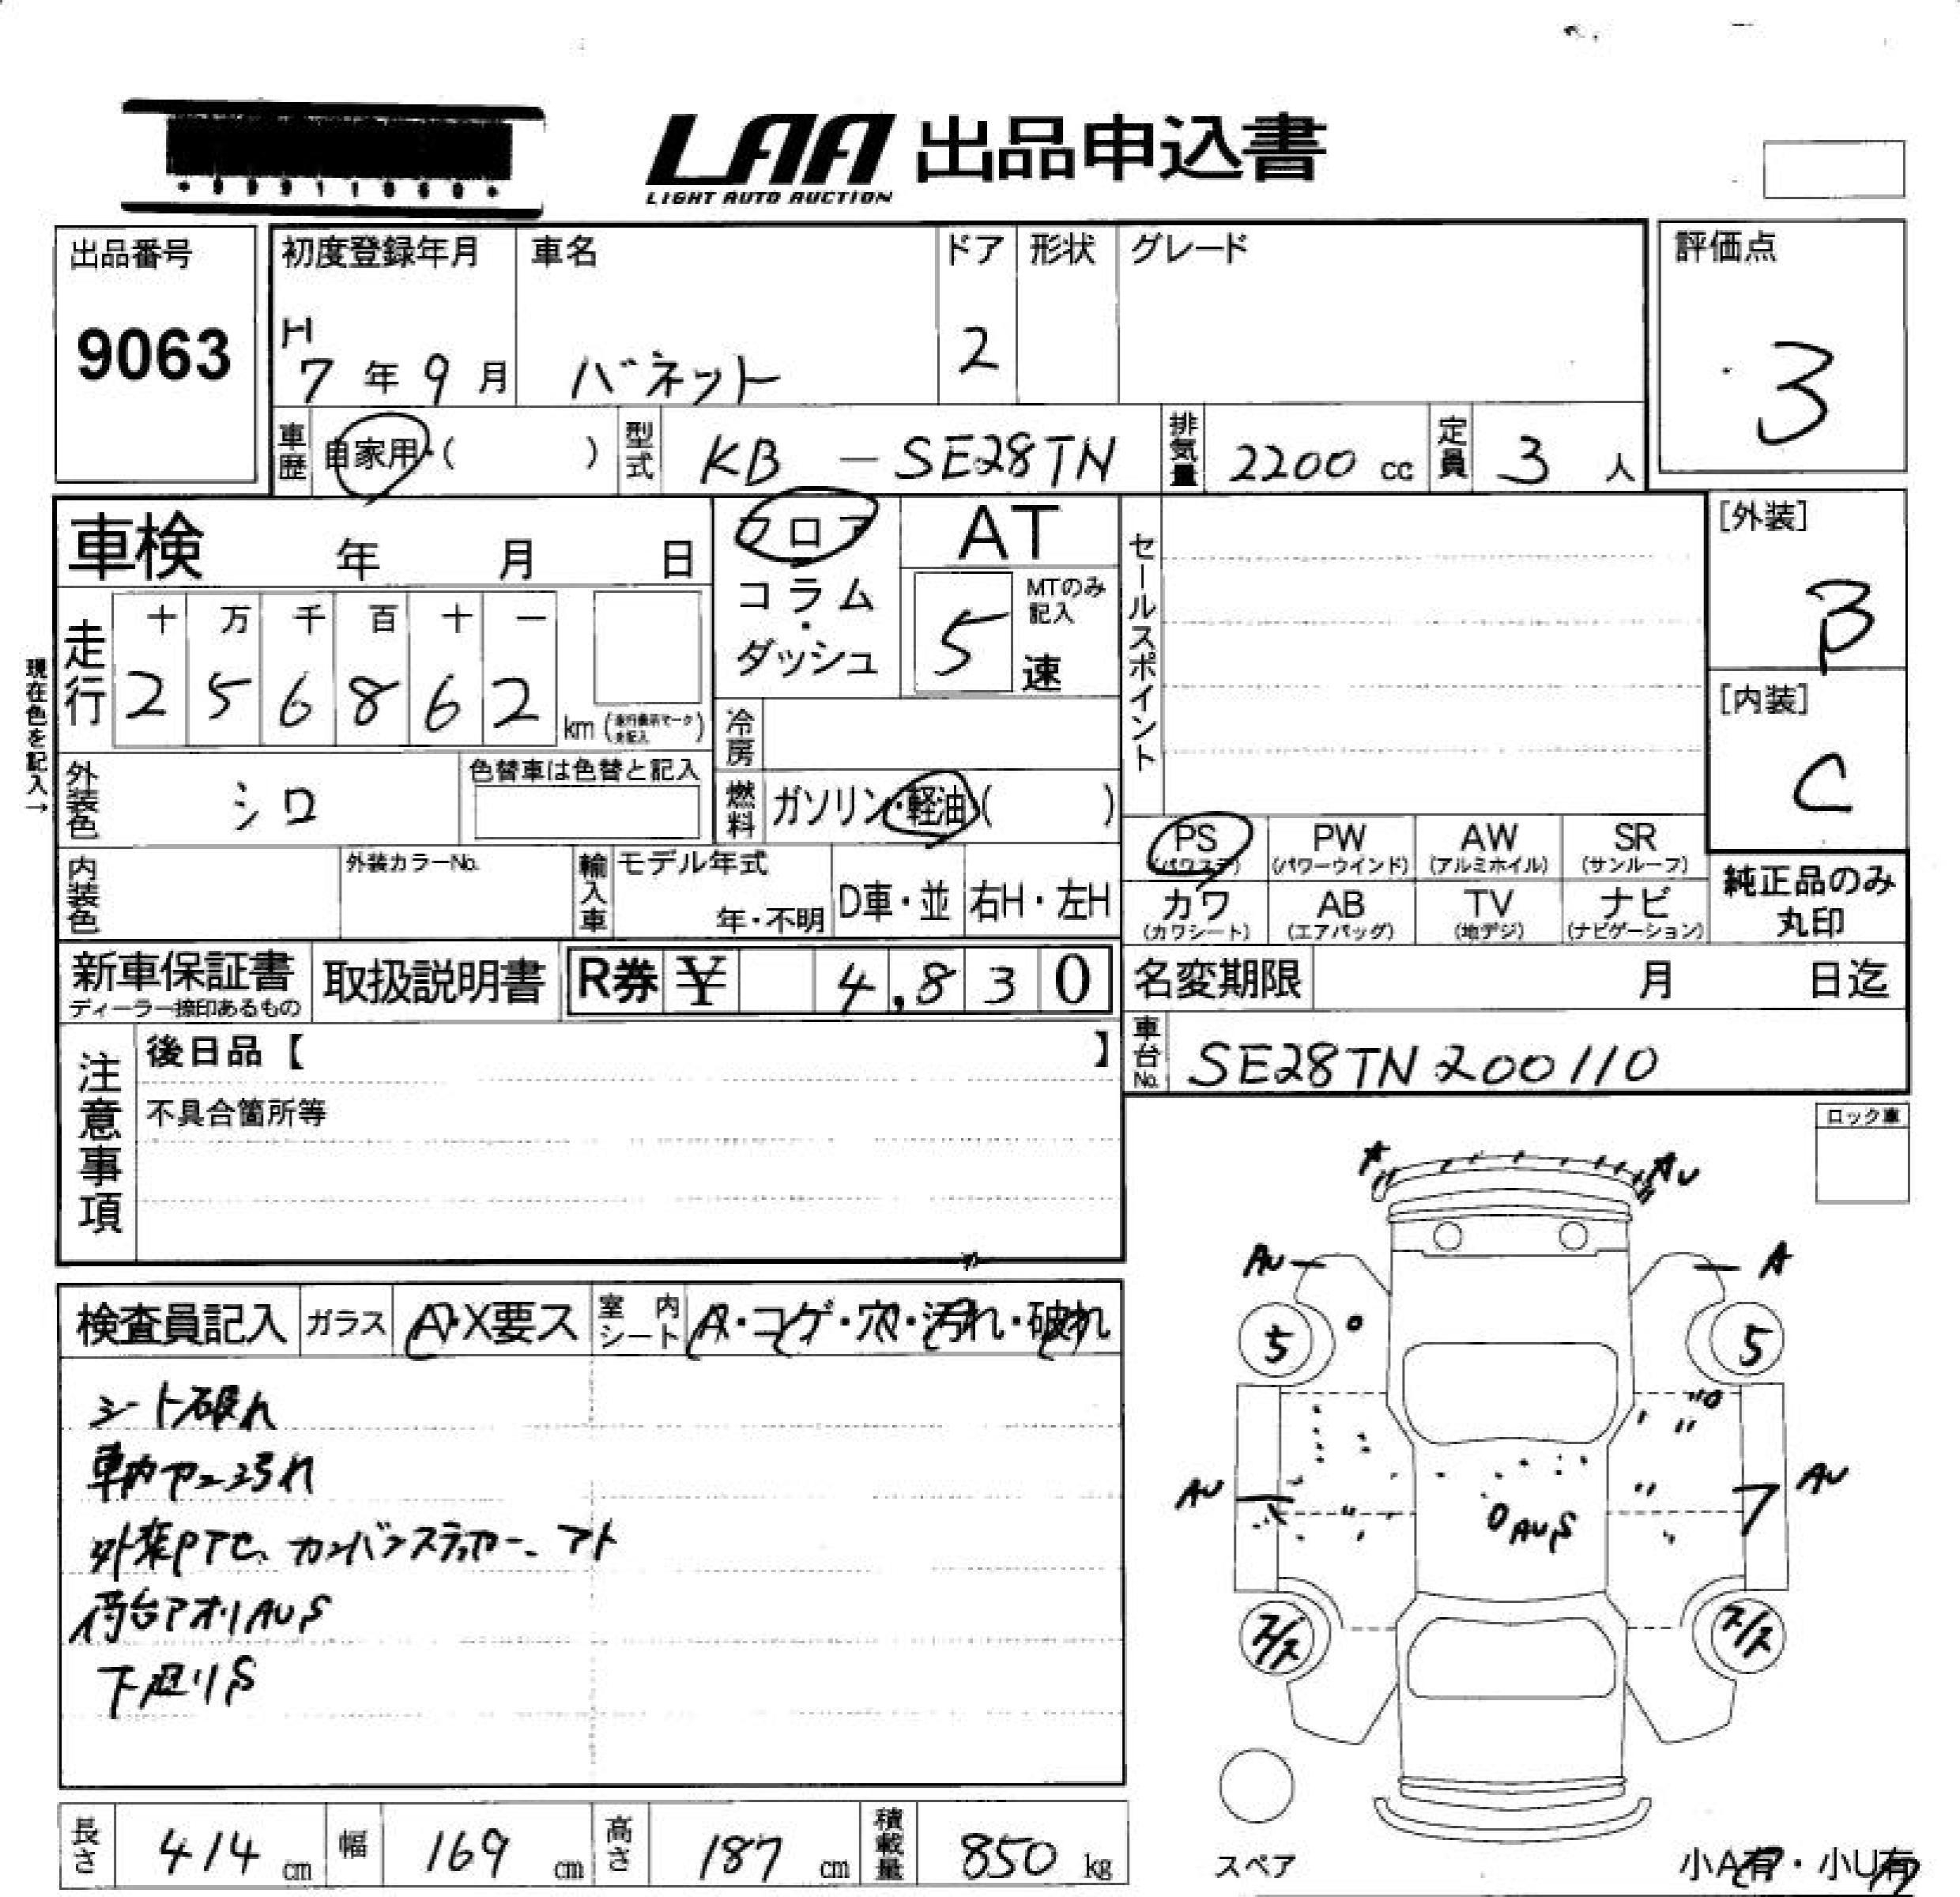 LAA 出品申込書
LIGHT AUTO AUCTION
出品番号
9063
初度登録年月
H
7年9月
車名
バネット
ドア
2
形状
グレード
評価点
3
車歴 自家用・( )
型式 KB - SE28TN
排気量 2200 cc
定員 3 人
車検 年 月 日
フロア
コラム
・
ダッシュ
AT
MTのみ記入
5速
セールスポイント
[外装]
B
[内装]
C
現在色を記入→
走行
十 万 千 百 十 一
2 5 6 8 6 2 km
冷房
外装色 シロ
色替車は色替と記入
燃料 ガソリン・軽油( )
PS (パワステ)
PW (パワーウインド)
AW (アルミホイル)
SR (サンルーフ)
カワ (カワシート)
AB (エアバッグ)
TV (地デジ)
ナビ (ナビゲーション)
純正品のみ
丸印
内装色
外装カラーNo.
輸入車
モデル年式
年・不明
D車・並
右H・左H
新車保証書
ディーラー捺印あるもの
取扱説明書
R券 ¥ 4,830
名変期限 月 日迄
車台No. SE28TN200110
注意事項
後日品【 】
不具合箇所等
ロック車
検査員記入
ガラス A・X要ス
室内シート A・コゲ・穴・汚れ・破れ
シート破れ
外装PTセ、カンバンステッカー、アト
荷台アオリAUS
下廻りS
A
AU
AU
A
5
5
AU
AU
AUS
スペア
小A有・小U有
長さ 414 cm
幅 169 cm
高さ 187 cm
積載量 850 kg